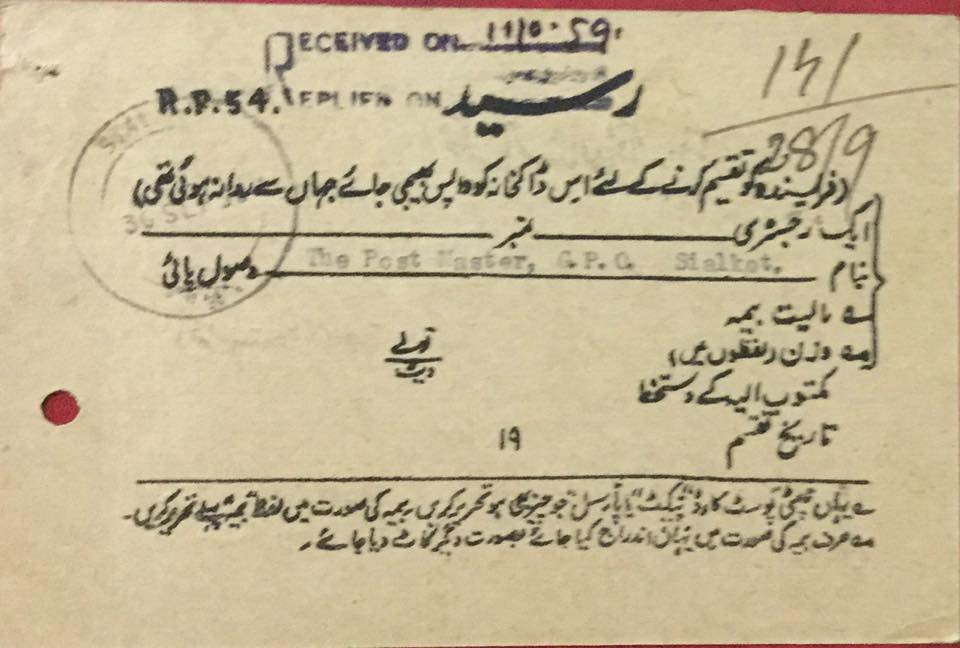 RECEIVED ON 11/0.59.
141
R.P.54. REPLIED ON رسید
28/9
(فریسندہ کو تقسیم کرنے کے لئے اس ڈاکخانہ کو واپس بھیجی جائے جہاں سے روانہ ہوئی تھی)
30 SE
ایک رجسٹری نمبر
بنام The Post Master, G.P.O. Sialkot. وصول پائی
مالیت بیمہ
وزن (لفظوں میں) تولے
کمتوب الیہ کے دستخط
تاریخ تقسیم ۱۹
یہاں چٹھی پوسٹ کارڈ "پیکٹ" یا پارسل جو چیز بھی ہو تحریر کریں بیمہ کی صورت میں لفظ بیمہ پہلے تحریر کریں۔
صرف بیمہ کی صورت میں یہاں اندراج کیا جائے بصورت دیگر کاٹ دیا جائے۔